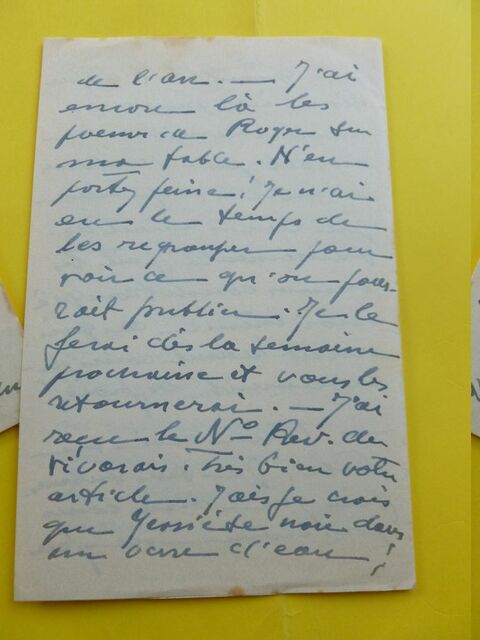 de l'an. — J'ai
encore là les
poèmes de Roger sur
ma table. N'en
portez peine! Je n'ai
eu le temps de
les regrouper pour
voir ce qu'on pour-
rait publier. Je le
ferai dès la semaine
prochaine et vous les
retournerai. — J'ai
reçu le N° Rev. du
Vivarais. Très bien votre
article. Mais je crois
que se noie dans
un verre d'eau!